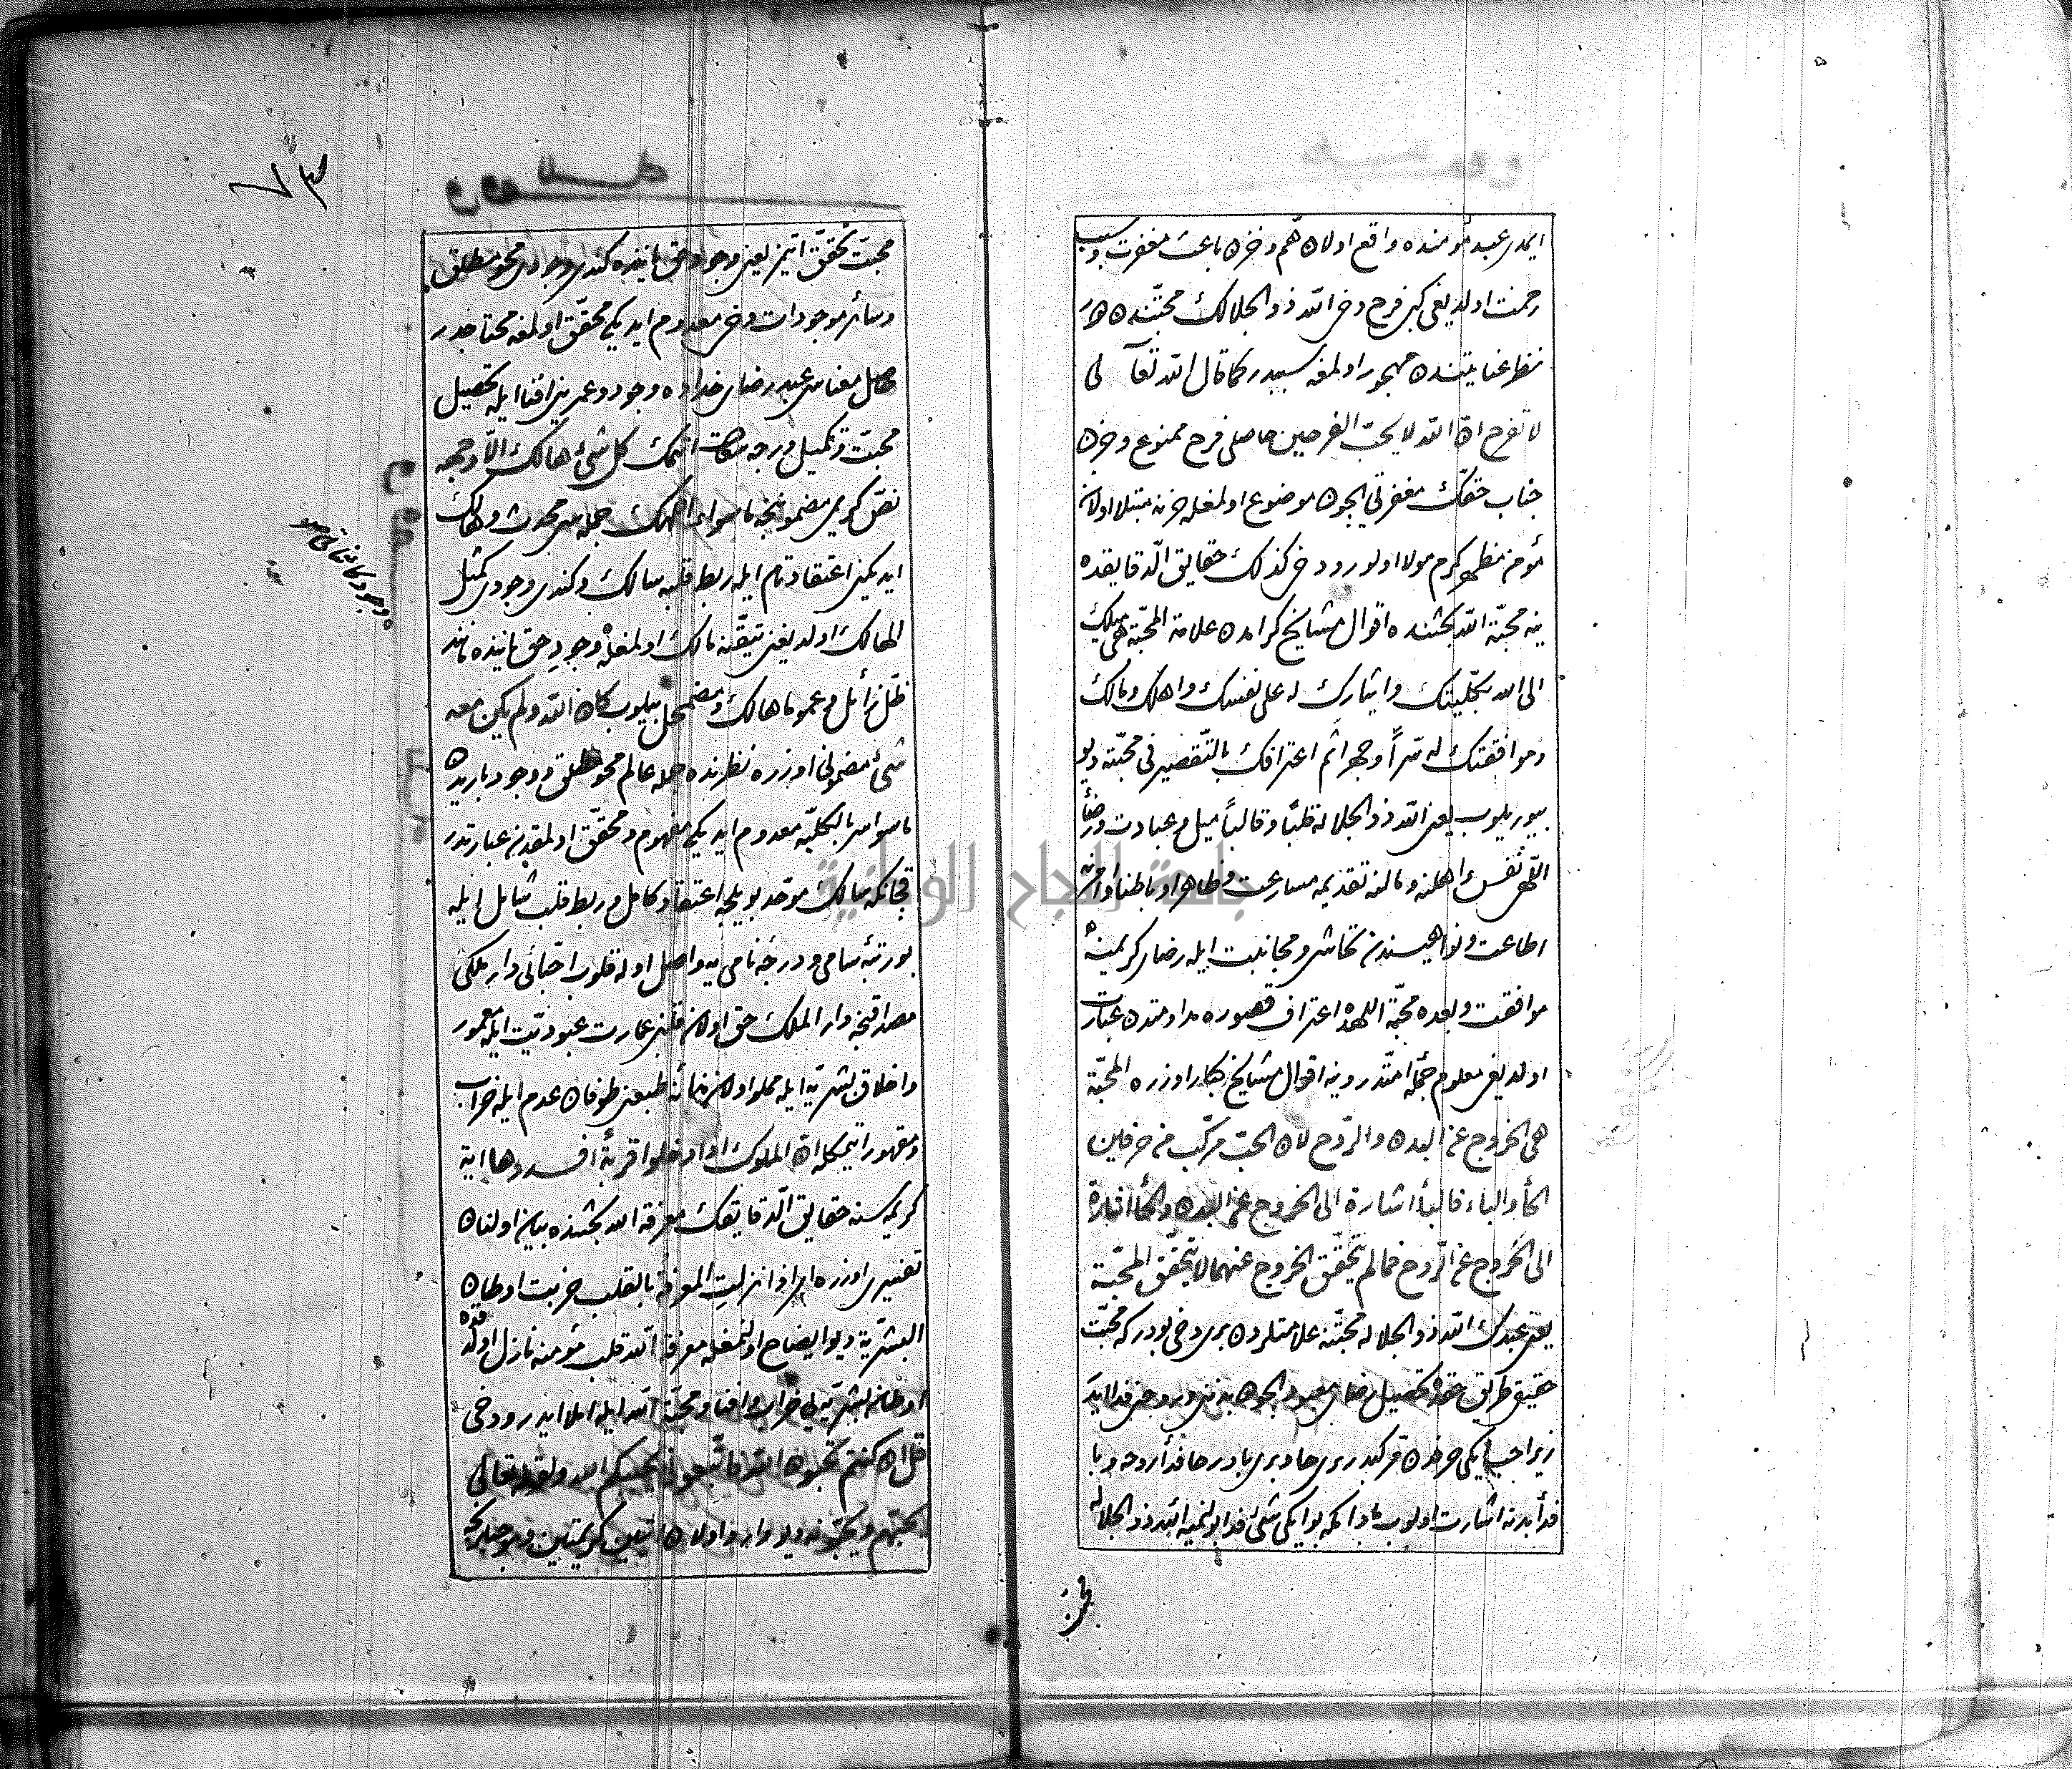 ايمدى عبد مؤمنده واقع اولان هم وحزن باعث مغفرت وسبب
رحمت اولديغى كبى فرح دخى الله ذو الجلالك محبتندن هر
نظر عنايتندن مهجور اولمغه سببدر كما قال الله تعالى
لا تفرح ان الله لا يحب الفرحين حاصلى فرح ممنوع وحزن
جناب حقك مغفرتى ايچون موضوع اولمغله حزنه مبتلا اولان
مؤمن مظهر كرم مولا اولور ودخى كذلك حقايق الدقايقده
ينه محبة الله بحثنده اقوال مشايخ كرامدن علامة المحبة هى ميلك
الى الله بكليتك وايثارك له على نفسك واهلك ومالك
وموافقتك له سراً وجهراً ثم اعترافك بالتقصير فى محبته ديو
بيوريلوب يعنى الله ذو الجلاله قلباً وقالباً ميل وعبادت ورضاى
اللهى نفس واهلنه ومالنه تقديمه مسارعت وظاهرا وباطنا وامرينه
اطاعت ونواهيسندن تحاشى ومجانبت ايله رضاى كريمنه
موافقت وبعده محبة اللهده اعتراف قصوره مداومتدن عبارت
اولديغى معلوم جمله امتدر وينه اقوال مشايخ كبار اوزره المحبة
هى الخروج عن البدن والروح لان الحب مركب من حرفين
الحاء والباء فالباء اشارة الى الخروج عن البدن والحاء اشارة
الى الخروج عن الروح فما لم يتحقق الخروج عنهما لا يتحقق المحبة
يعنى عبدك الله ذو الجلاله محبتنه علامتلردن برى دخى بودر كه محبت
حقيقى طريق حقده تحصيل رضاى معبود ايچون بدنى وروحنى فدا ايده
زيرا حب ايكى حرفدن مركبدر برى حا وبرى بادر حا فداء روحه وبا
فداء بدنه اشارت اولوب مادامكه بو ايكى شئ فدا اولنميه الله ذو الجلاله
محبت
٧٣
محبت تحقق ايتمز يعنى وجود حق ياننده كندى وجودى محو مطلق
وسائر موجودات دخى معدوم ايديكى محقق اولمغه محتاجدر
حاصل معناسى عبد رضاى خداده وجود وعمرينى افنا ايله تحصيل
محبت وتكميل درجه ايتمك كل شئ هالك الا وجهه
نص كريمى مضمونجه ماسوا اللهك جمله سى محدث وهالك
ايديكنه اعتقاد تام ايله ربط قلبه سالك وكندى وجودى كمثل
الهالك اولديغى تيقنه مالك اولمغله وجود حق ياننده مانند
ظل زائل وعموما هالك ومضمحل بيلوب كان الله ولم يكن معه
شئ مضمونى اوزره نظرنده جمله عالم محو مطلق ووجود باريدن
ماسواسى بالكليه معدوم ايديكى مفهوم ومحقق اولمقدن عبارتدر
قچانكه سالك موحد بويلجه اعتقاد كامل وربط قلب شامل ايله
بو رتبه سامى ودرجه نامى يه واصل اوله قلوب احبائى دار ملكى
مصداقنجه دار الملك حق اولان قلبنى عمارت عبوديت ايله معمور
واخلاق بشريه ايله مملو اولان طبعنى طوفان عدم ايله خراب
ومقهور ايتمكله ان الملوك اذا دخلوا قرية افسدوها اية
كريمه سنه حقايق الدقايقك معرفة الله بحثنده بيان اولنان
تفسيرى اوزره اى اذا نزلت المعرفة بالقلب خربت اوطان
البشرية ديو ايضاح اولنمغله معرفة الله قلب مؤمنه نازل اولدقده
اوطان بشريه يى خراب وافنا ومحبة الله ايله املا ايدر ودخى
قل ان كنتم تحبون الله فاتبعونى يحببكم الله ولقوله تعالى
يحبهم ويحبونه ديو وارد اولان ايتين كريمتين موجبلرنجه